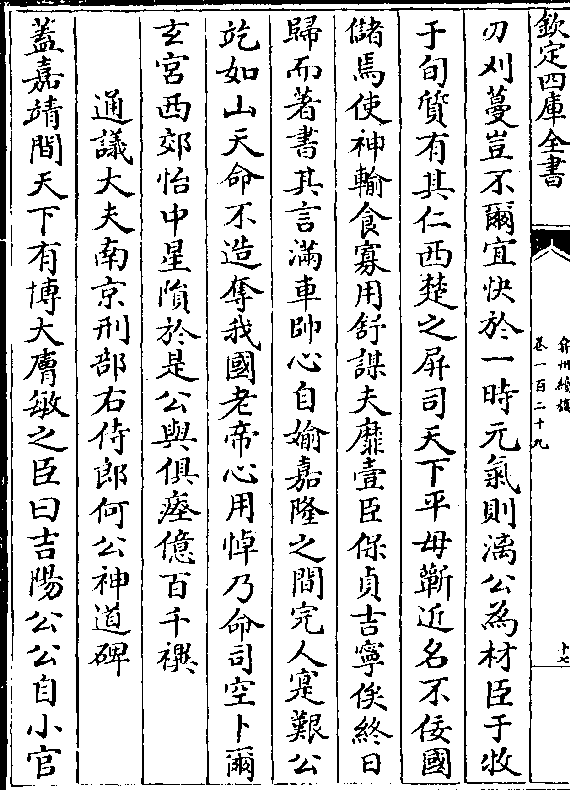 欽定四庫全書
弇州續稿
卷一百二十九
十七
刃刈蔓豈不爾宜快於一時元氣則漓公為材臣于收
于旬質有其仁西楚之屏司天下平毋蘄近名不佞國
儲焉使神輸食寡用舒謀夫靡壹臣保貞吉寧俟終日
歸而著書其言滿車帥心自媮嘉隆之間完人寔艱公
屹如山天命不造奪我國老帝心用悼乃命司空卜爾
玄宮西郊怡中星隕於是公與俱瘞億百千禩
通議大夫南京刑部右侍郎何公神道碑
蓋嘉靖間天下有博大膚敏之臣曰吉陽公公自小官